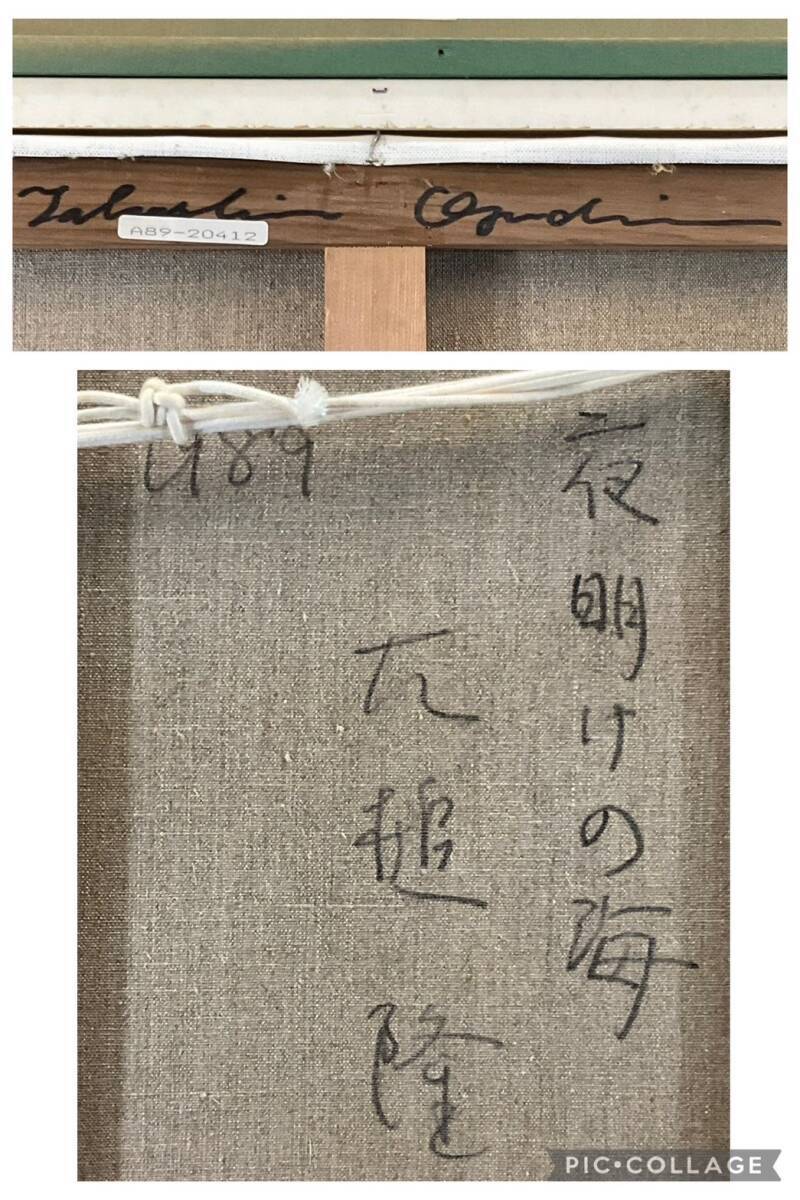 Takashi Ozuchi
A89-20412
夜明けの海
大槌 隆
89
PIC•COLLAGE